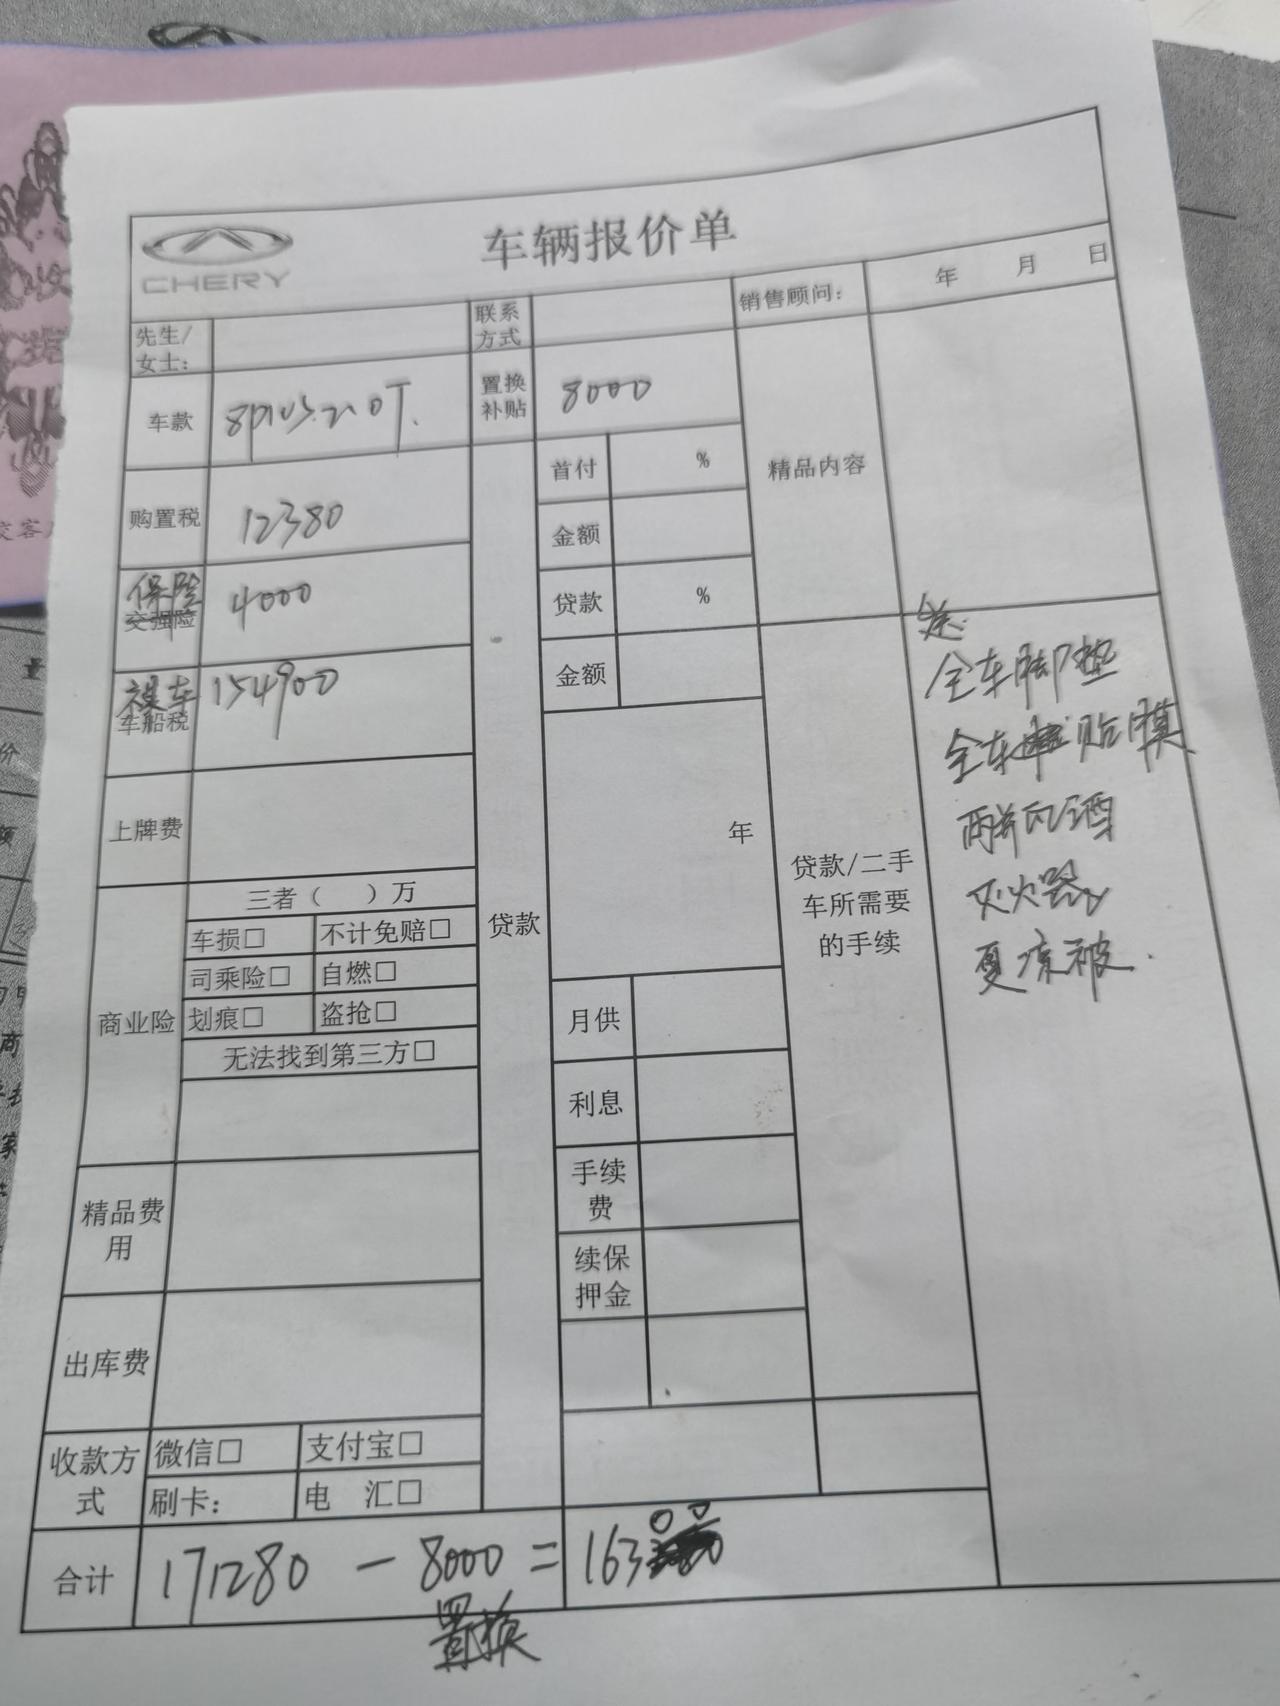 CHERY
车辆报价单
先生/女士：
联系方式
销售顾问：
年 月 日
车款 8plus.2.0T.
置换补贴 8000
精品内容
购置税 12380
首付 %
金额
保险 4000
交强险
贷款 %
裸车 154900
车船税
金额
上牌费
年
三者（ ）万
车损□ 不计免赔□
司乘险□ 自燃□
商业险
划痕□ 盗抢□
无法找到第三方□
贷款
贷款/二手车所需要的手续
送:
全车脚垫
全车贴膜
两箱红酒
灭火器
夏凉被.
月供
利息
手续费
续保押金
精品费用
出库费
收款方式
微信□ 支付宝□
刷卡： 电 汇□
合计 171280 - 8000 = 163
00
置换